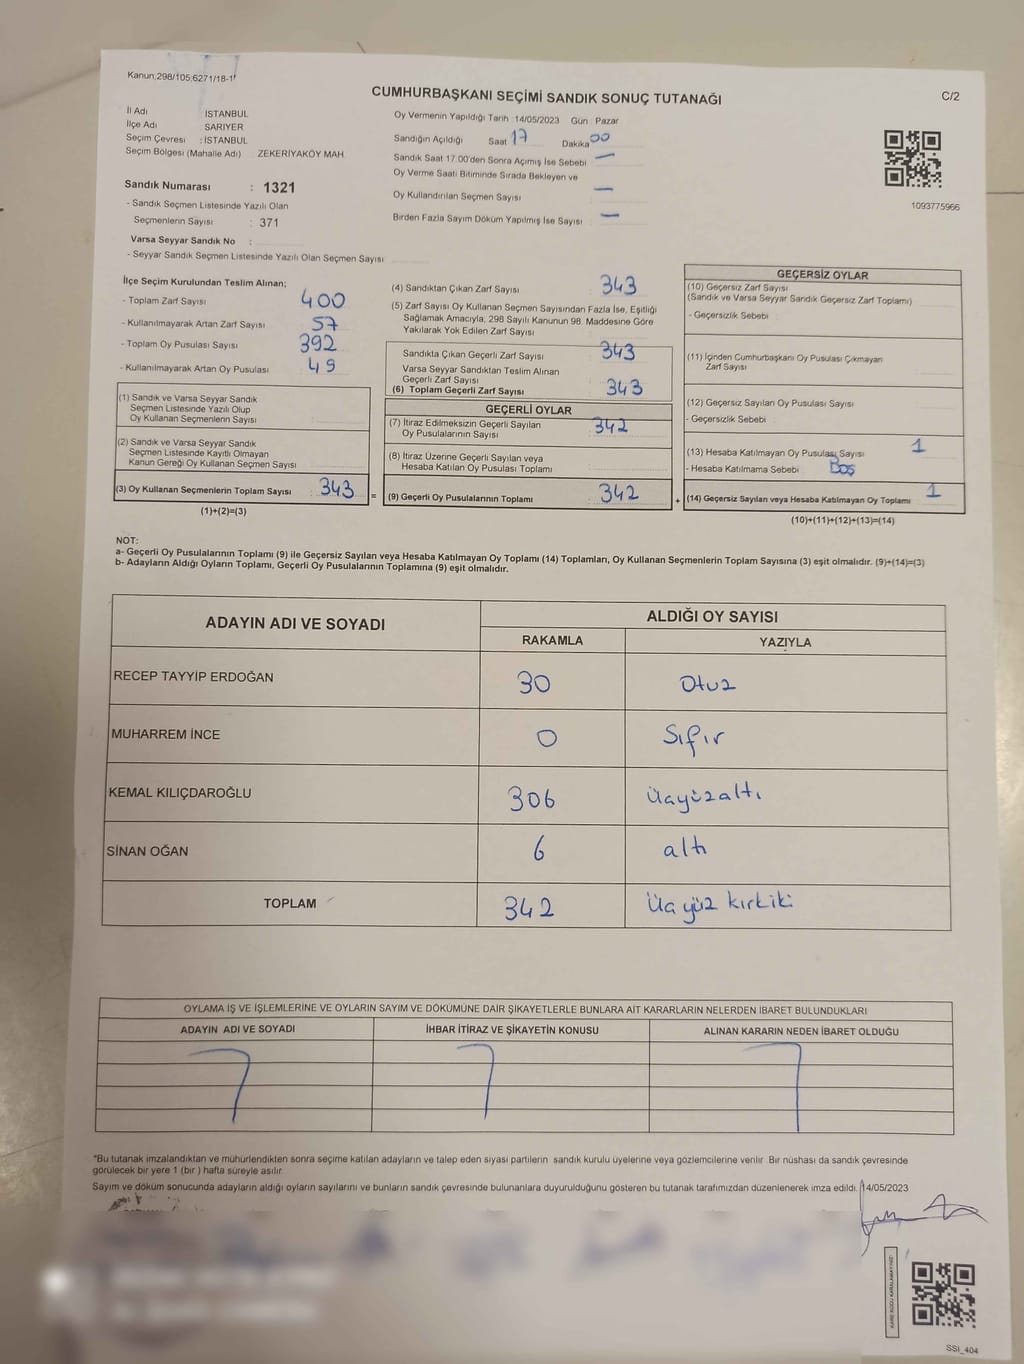 Kanun;298/105;6271/18-1f
CUMHURBAŞKANI SEÇİMİ SANDIK SONUÇ TUTANAĞI
C/2
İl Adı İSTANBUL
İlçe Adı SARIYER
Seçim Çevresi : İSTANBUL
Seçim Bölgesi (Mahalle Adı) ZEKERİYAKÖY MAH.
Sandık Numarası : 1321
- Sandık Seçmen Listesinde Yazılı Olan
Seçmenlerin Sayısı : 371
Varsa Seyyar Sandık No :
- Seyyar Sandık Seçmen Listesinde Yazılı Olan Seçmen Sayısı
Oy Vermenin Yapıldığı Tarih :14/05/2023 Gün : Pazar
Sandığın Açıldığı Saat 17 Dakika 00
Sandık Saat 17.00'den Sonra Açımış İse Sebebi —
Oy Verme Saati Bitiminde Sırada Bekleyen ve
Oy Kullandırılan Seçmen Sayısı —
Birden Fazla Sayım Döküm Yapılmış İse Sayısı —
1093775966
İlçe Seçim Kurulundan Teslim Alınan;
- Toplam Zarf Sayısı 400
- Kullanılmayarak Artan Zarf Sayısı 57
- Toplam Oy Pusulası Sayısı 392
- Kullanılmayarak Artan Oy Pusulası 49
(1) Sandık ve Varsa Seyyar Sandık
Seçmen Listesinde Yazılı Olup
Oy Kullanan Seçmenlerin Sayısı
(2) Sandık ve Varsa Seyyar Sandık
Seçmen Listesinde Kayıtlı Olmayan
Kanun Gereği Oy Kullanan Seçmen Sayısı
(3) Oy Kullanan Seçmenlerin Toplam Sayısı : 343 =
(1)+(2)=(3)
(4) Sandıktan Çıkan Zarf Sayısı 343
(5) Zarf Sayısı Oy Kullanan Seçmen Sayısından Fazla İse, Eşitliği
Sağlamak Amacıyla, 298 Sayılı Kanunun 98. Maddesine Göre
Yakılarak Yok Edilen Zarf Sayısı
Sandıkta Çıkan Geçerli Zarf Sayısı 343
Varsa Seyyar Sandıktan Teslim Alınan
Geçerli Zarf Sayısı
(6) Toplam Geçerli Zarf Sayısı 343
GEÇERLİ OYLAR
(7) İtiraz Edilmeksizin Geçerli Sayılan
Oy Pusulalarının Sayısı 342
(8) İtiraz Üzerine Geçerli Sayılan veya
Hesaba Katılan Oy Pusulası Toplamı
(9) Geçerli Oy Pusulalarının Toplamı 342 +
GEÇERSİZ OYLAR
(10) Geçersiz Zarf Sayısı
(Sandık ve Varsa Seyyar Sandık Geçersiz Zarf Toplamı)
- Geçersizlik Sebebi
(11) İçinden Cumhurbaşkanı Oy Pusulası Çıkmayan
Zarf Sayısı
(12) Geçersiz Sayılan Oy Pusulası Sayısı
- Geçersizlik Sebebi
(13) Hesaba Katılmayan Oy Pusulası Sayısı 1
- Hesaba Katılmama Sebebi Boş
(14) Geçersiz Sayılan veya Hesaba Katılmayan Oy Toplamı 1
(10)+(11)+(12)+(13)=(14)
NOT:
a- Geçerli Oy Pusulalarının Toplamı (9) ile Geçersiz Sayılan veya Hesaba Katılmayan Oy Toplamı (14) Toplamları, Oy Kullanan Seçmenlerin Toplam Sayısına (3) eşit olmalıdır. (9)+(14)=(3)
b- Adayların Aldığı Oyların Toplamı, Geçerli Oy Pusulalarının Toplamına (9) eşit olmalıdır.
ADAYIN ADI VE SOYADI
ALDIĞI OY SAYISI
RAKAMLA YAZIYLA
RECEP TAYYİP ERDOĞAN 30 Otuz
MUHARREM İNCE 0 Sıfır
KEMAL KILIÇDAROĞLU 306 Üçyüzaltı
SİNAN OĞAN 6 altı
TOPLAM 342 Üçyüz kırkiki
OYLAMA İŞ VE İŞLEMLERİNE VE OYLARIN SAYIM VE DÖKÜMÜNE DAİR ŞİKAYETLERLE BUNLARA AİT KARARLARIN NELERDEN İBARET BULUNDUKLARI
ADAYIN ADI VE SOYADI İHBAR İTİRAZ VE ŞİKAYETİN KONUSU ALINAN KARARIN NEDEN İBARET OLDUĞU
*Bu tutanak imzalandıktan ve mühürlendikten sonra seçime katılan adayların ve talep eden siyasi partilerin sandık kurulu üyelerine veya gözlemcilerine verilir. Bir nüshası da sandık çevresinde
görülecek bir yere 1 (bir ) hafta süreyle asılır.
Sayım ve döküm sonucunda adayların aldığı oyların sayılarını ve bunların sandık çevresinde bulunanlara duyurulduğunu gösteren bu tutanak tarafımızdan düzenlenerek imza edildi. 14/05/2023
KARE KODU KARALAMAYINIZ!
SSI_404